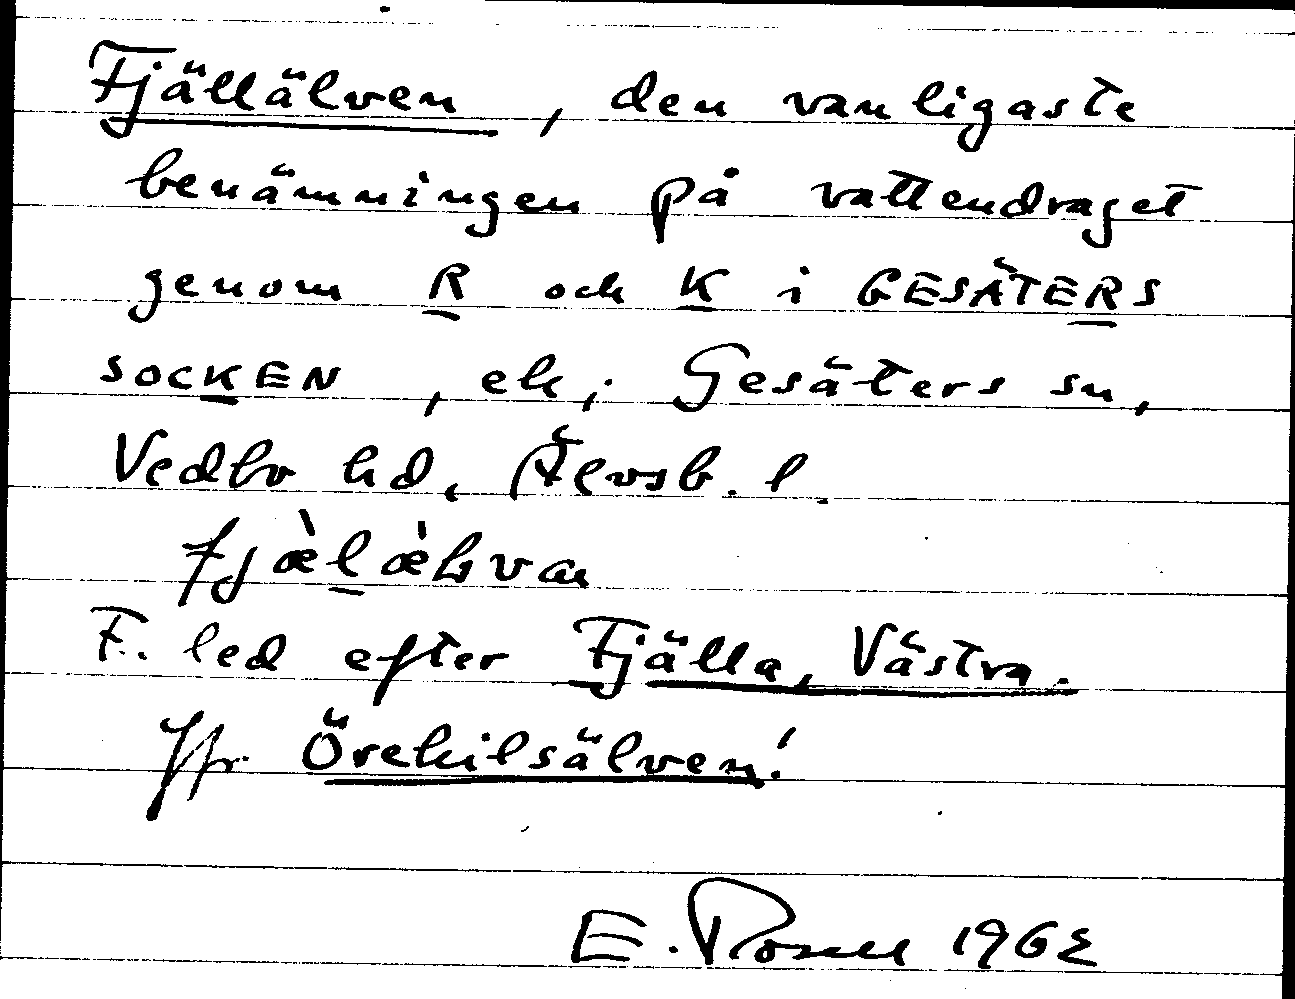 Fjällälven, den vanligaste
benämningen på vattendraget
genom R och K i GESÄTERS
SOCKEN, ek; Gesäters sn,
Vedbo hd, Älvsb. l.
fjæ̀læ̀lvan
F. led efter Fjälla, Västra.
Jfr Örekilsälven!
E. Rosell 1962